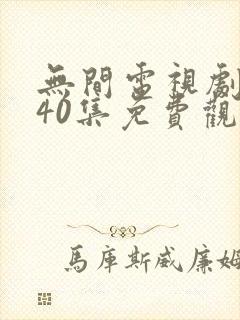 無間電視劇
40集免費觀
馬庫斯威廉姆